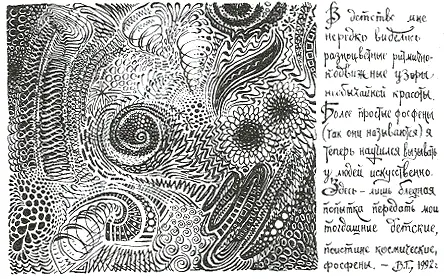 В детстве мне
нередко виделись
разноцветные ритмично-
подвижные узоры
необычайной красоты.
Более простые фосфены
(так они называются) я
теперь научился вызывать
у людей искусственно.
Здесь – лишь бледная
попытка передать мои
тогдашние детские,
поистине космические,
фосфены. – В.Г., 1992г.